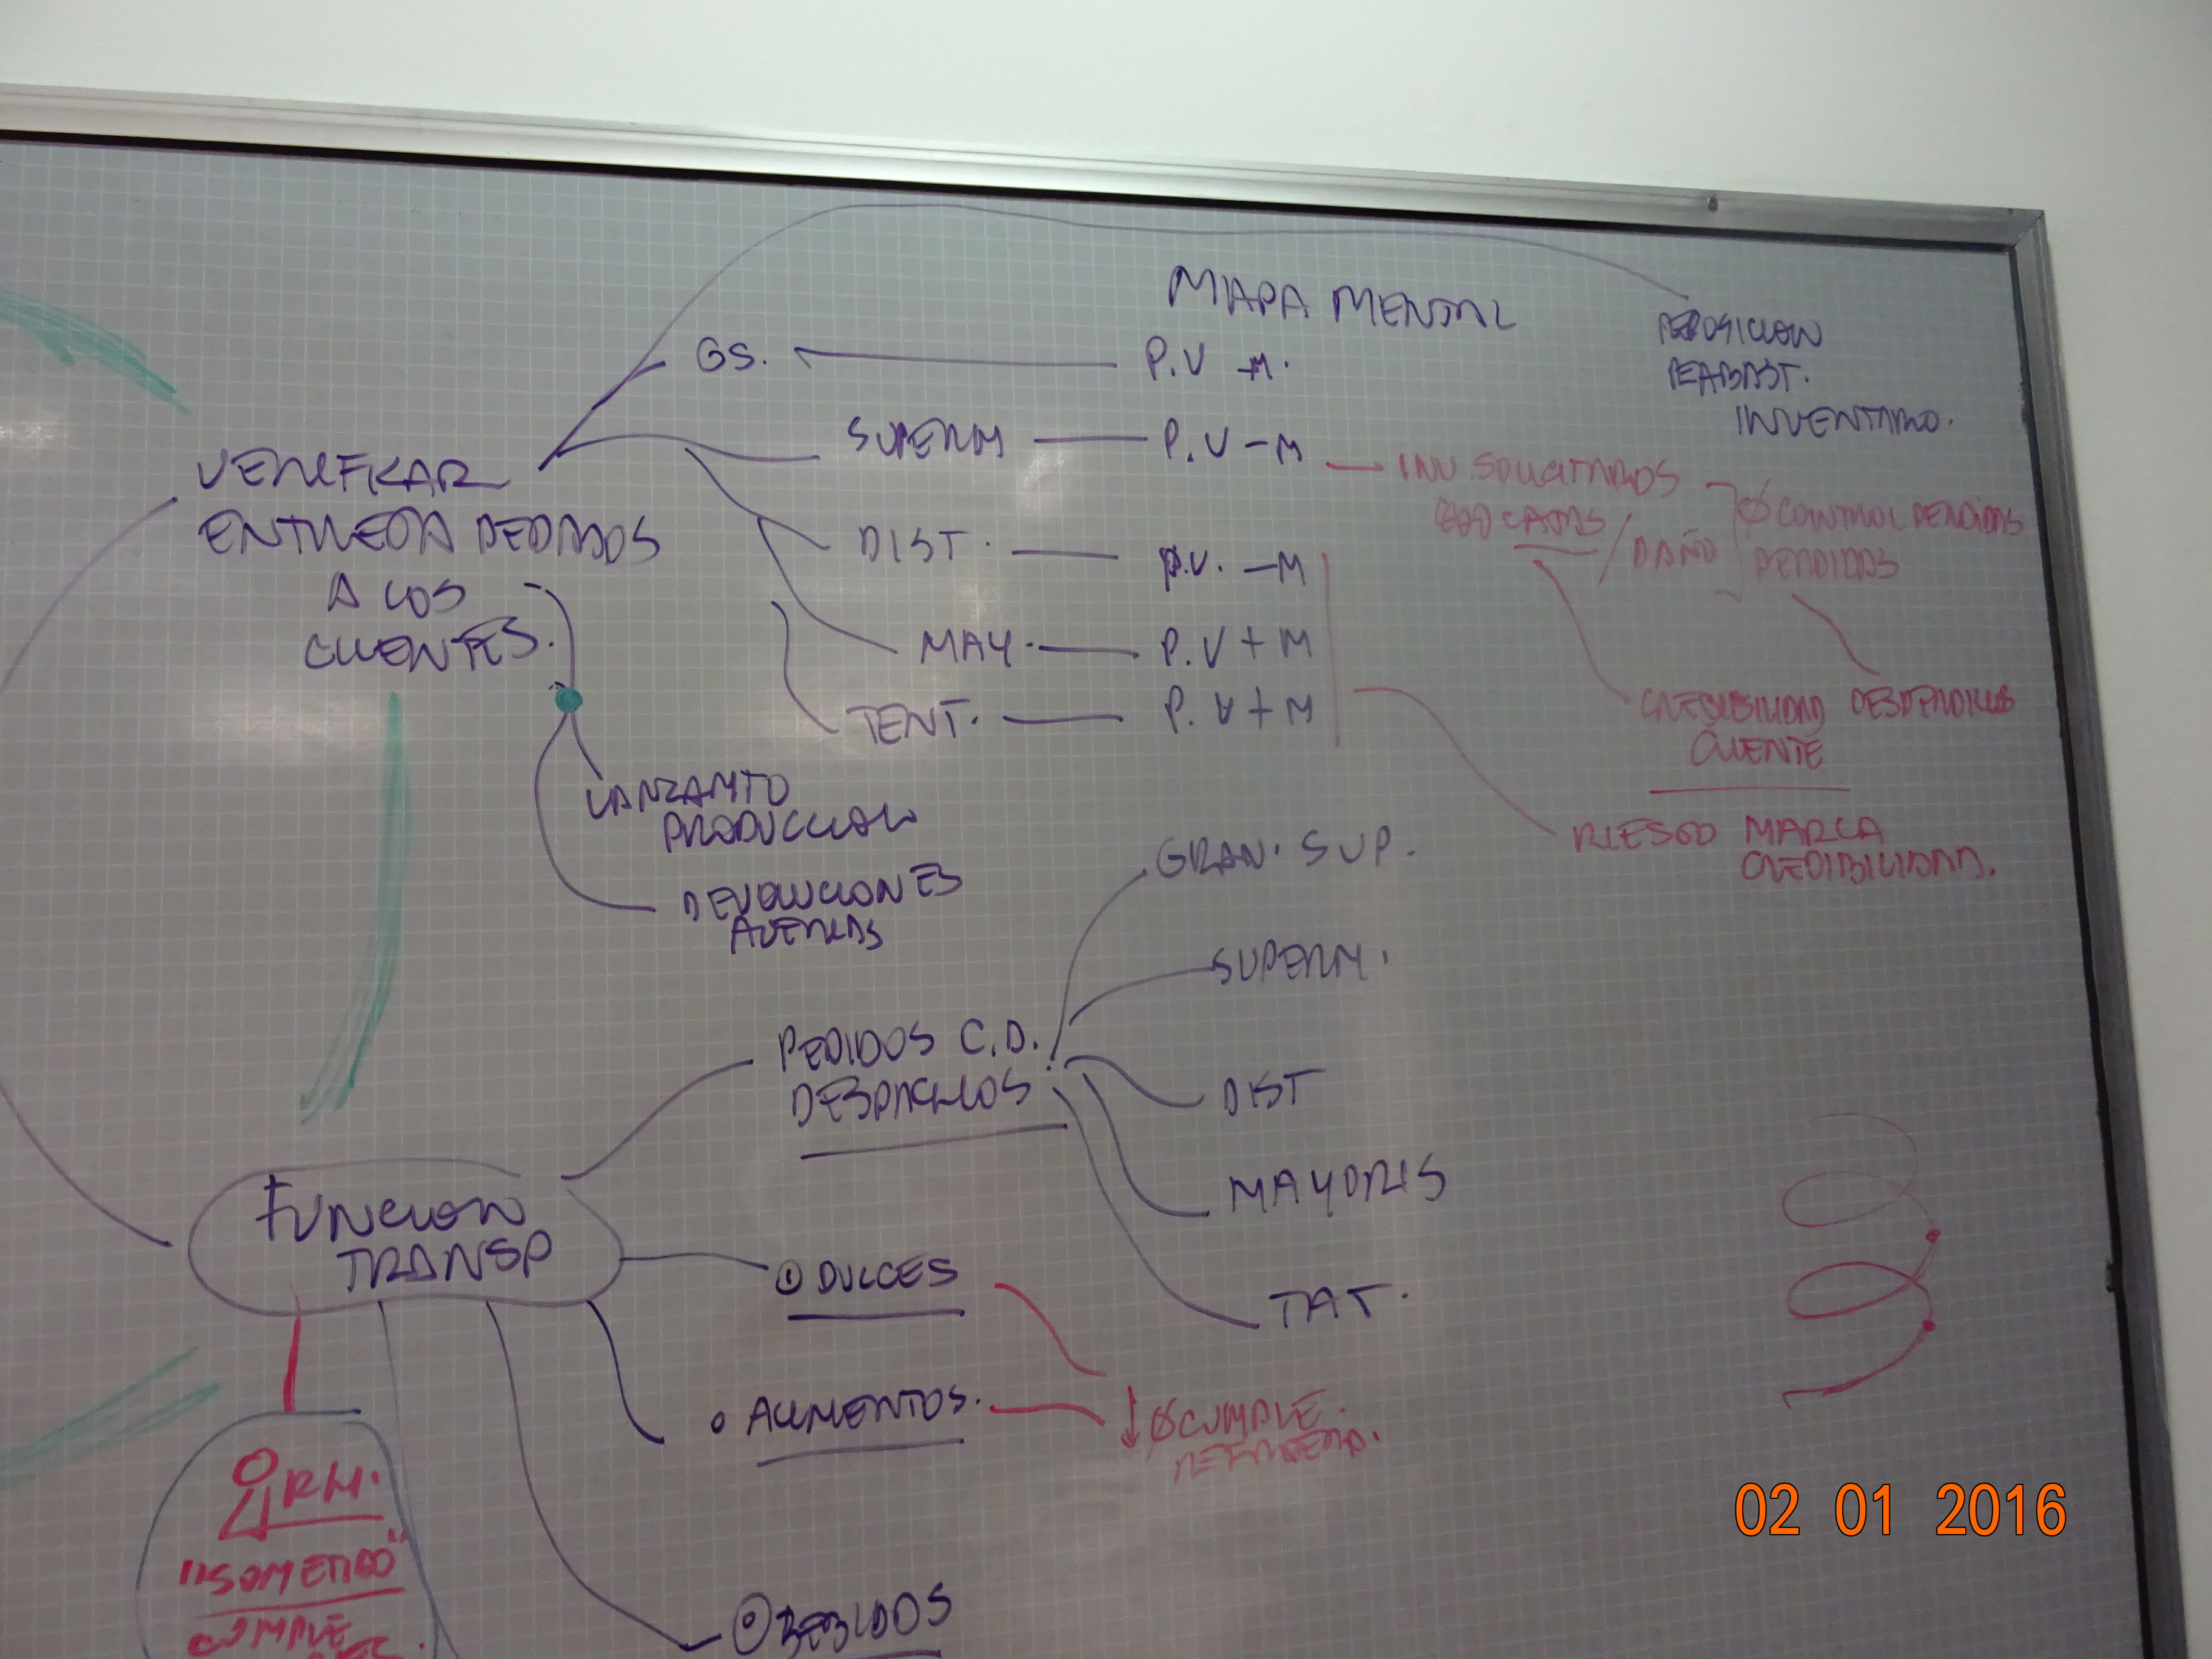 MAPA MENTAL
REPOSICION
REABAST.
INVENTARIO.
GS.
P.V -M.
SUPERM
P.V - M
VERIFICAR
ENTREGA PEDIDOS
A LOS
CLIENTES.
INV. SOLICITAROS
CAJAS / DAÑO
Ø CONTROL PERDIDAS
PERDIDAS
DIST.
P.V. - M
MAY.
P.V + M
TENT.
P.V + M
DESPERDICIOS
CLIENTE
RIESGO MARCA
CREDIBILIDAD.
LANZAMTO
PRODUCCION
DEVOLUCIONES
AVERIAS
GRAN. SUP.
SUPERM.
PEDIDOS C.D.
DESPACHOS
DIST
MAYORIS
TAT.
FUNCION
TRANSP
① DULCES
ALIMENTOS.
↓ Ø CUMPLE.
RH.
"SOMETIDO"
CUMPLE
BEBIDOS
02 01 2016